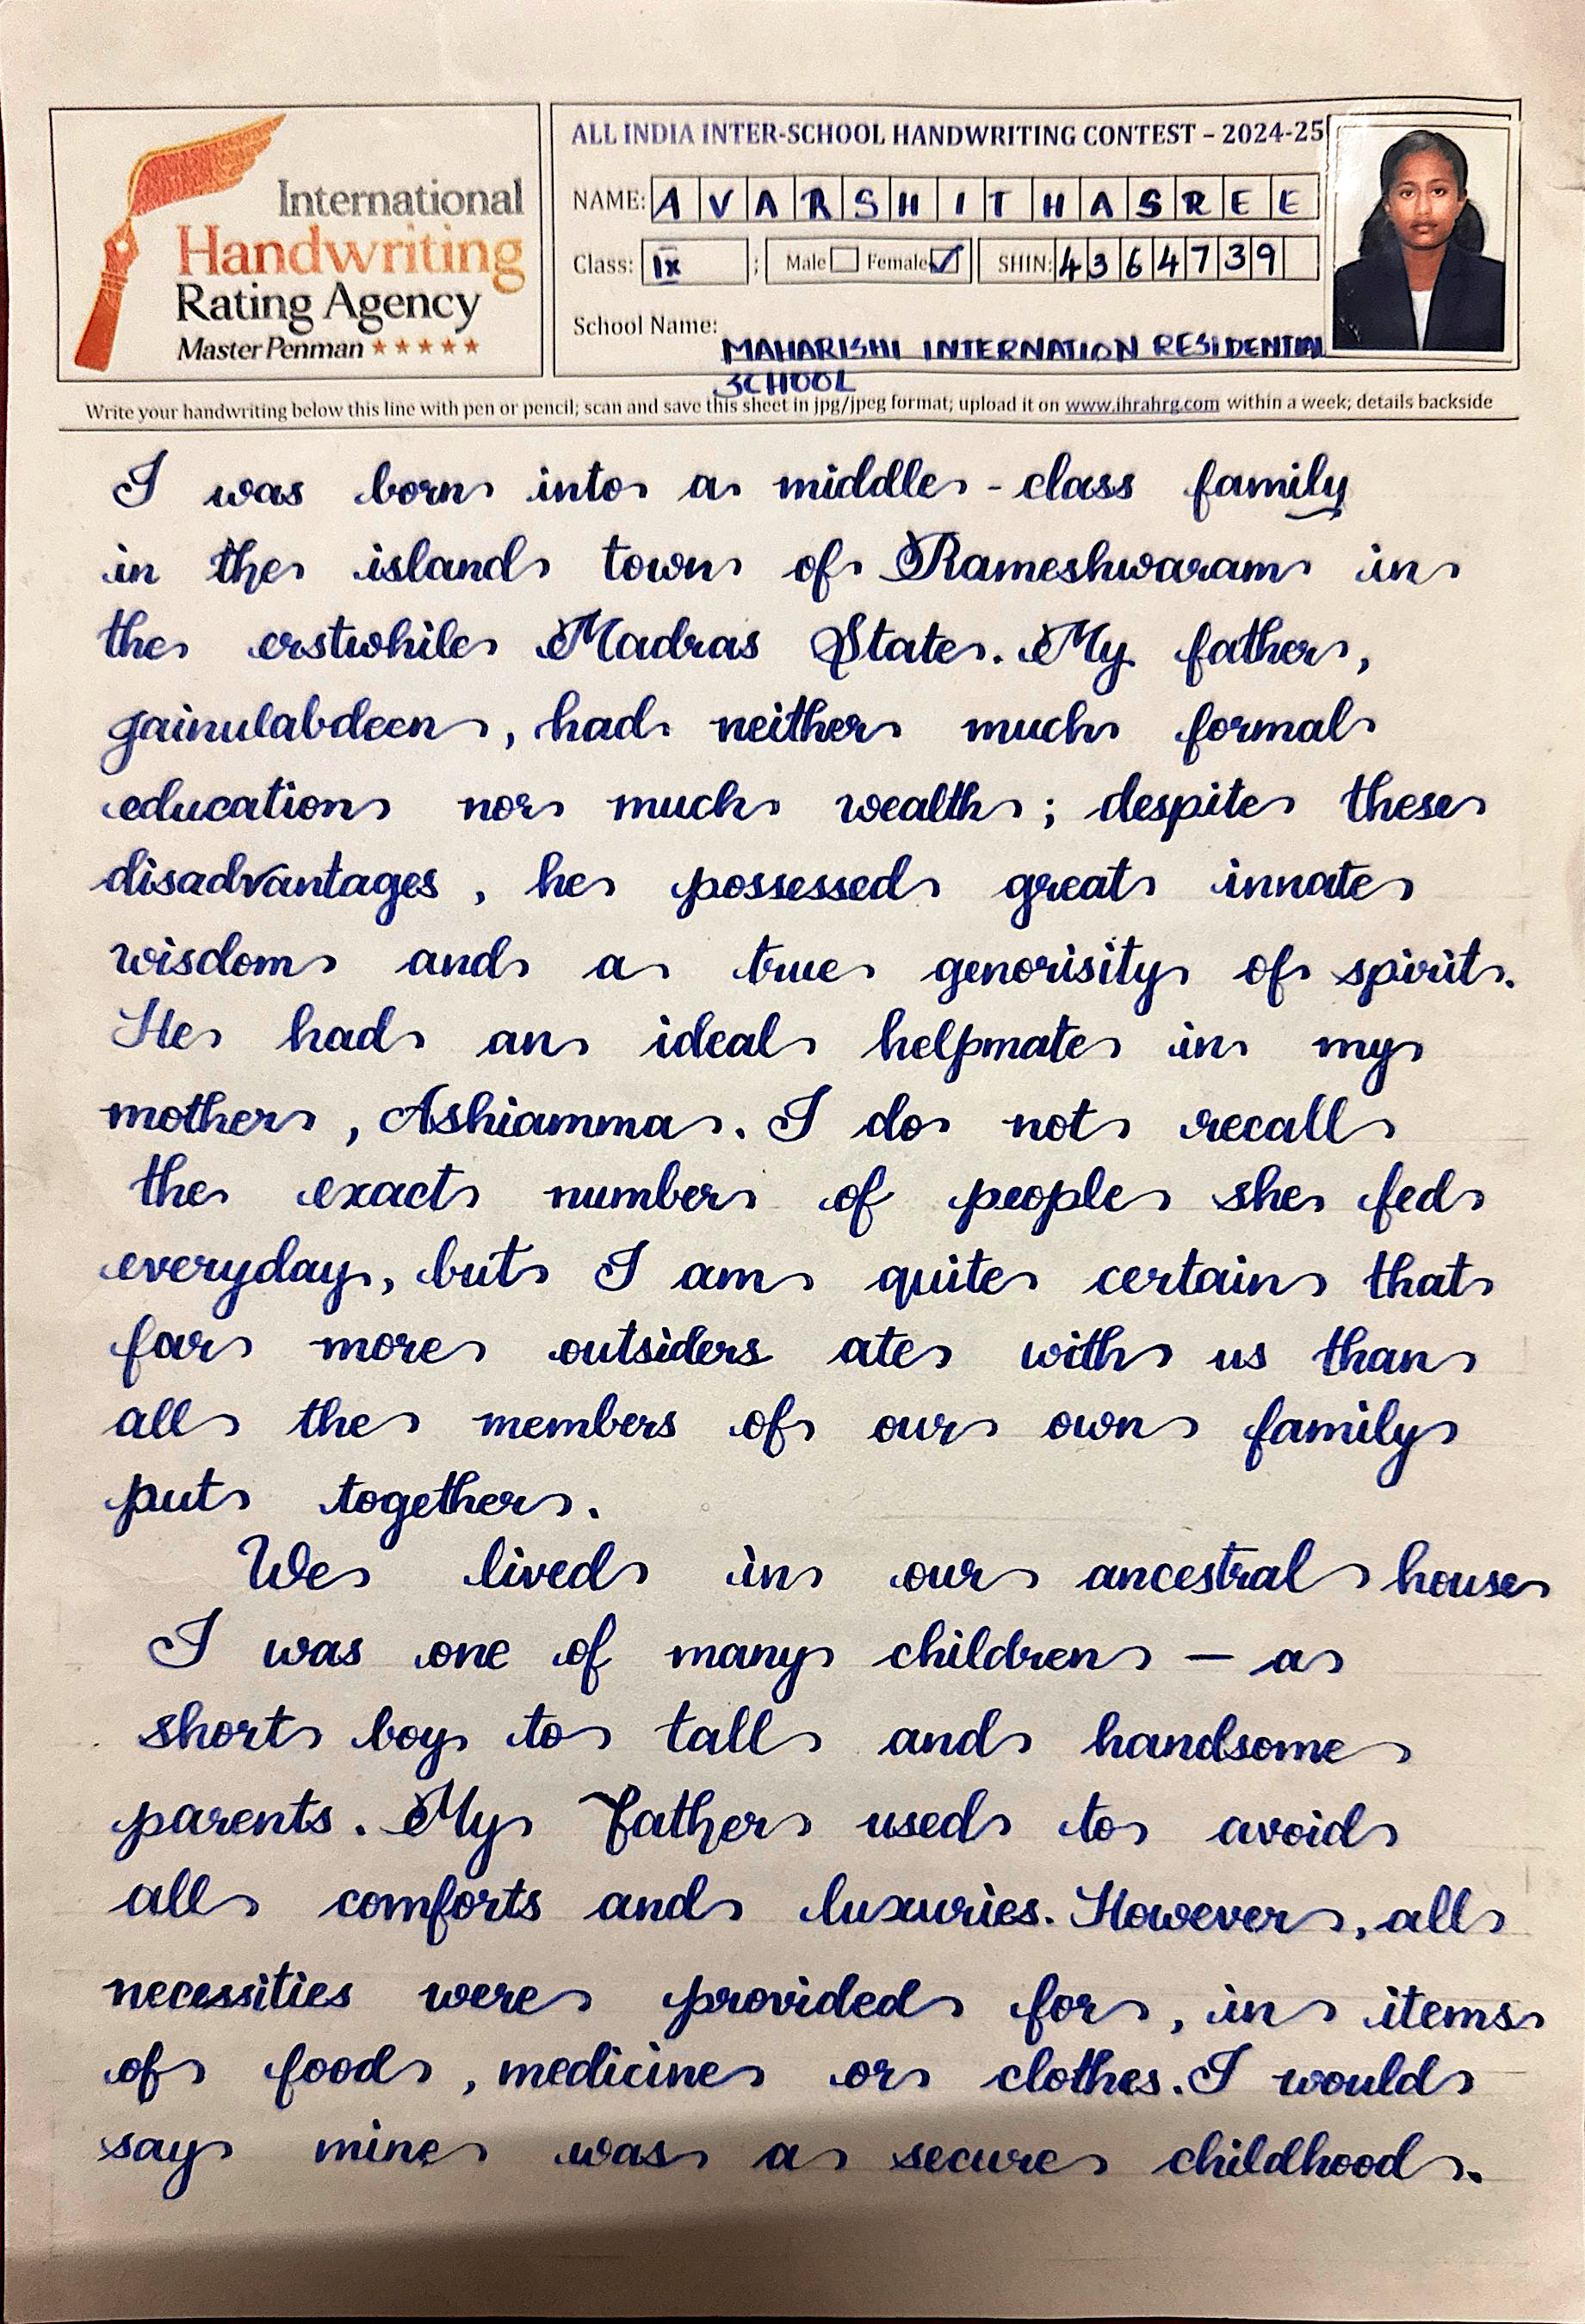 International
Handwriting
Rating Agency
Master Penman
ALL INDIA INTER-SCHOOL HANDWRITING CONTEST – 2024-25
NAME: AVARSHITHASREE
Class: IX ; Male Female SHIN: 4364739
School Name: MAHARISHI INTERNATION RESIDENTIAL
SCHOOL
Write your handwriting below this line with pen or pencil; scan and save this sheet in jpg/jpeg format; upload it on www.ihrahrg.com within a week; details backside
I was born into a middle-class family
in the island town of Rameshwaram in
the erstwhile Madras State. My father,
Jainulabdeen, had neither much formal
education nor much wealth; despite these
disadvantages, he possessed great innate
wisdom and a true genorisity of spirit.
He had an ideal helpmate in my
mother, Ashiamma. I do not recall
the exact number of people she fed
everyday, but I am quite certain that
far more outsiders ate with us than
all the members of our own family
put together.
We lived in our ancestral house
I was one of many children — a
short boy to tall and handsome
parents. My father used to avoid
all comforts and luxuries. However, all
necessities were provided for, in items
of food, medicine or clothes. I would
say mine was a secure childhood.